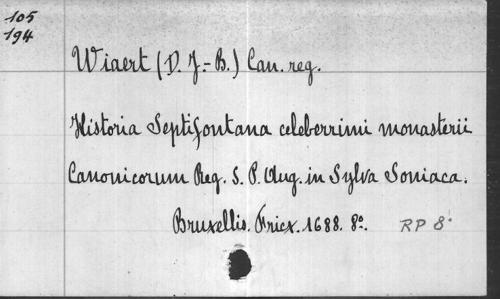 105
194
Wiaert (D. J.-B.) Can. reg.
Historia Septifontana celeberrimi monasterii
Canonicorum Reg. S. P. Aug. in Sylva Soniaca.
Bruxellis. Fricx. 1688. 8º. RP 8º